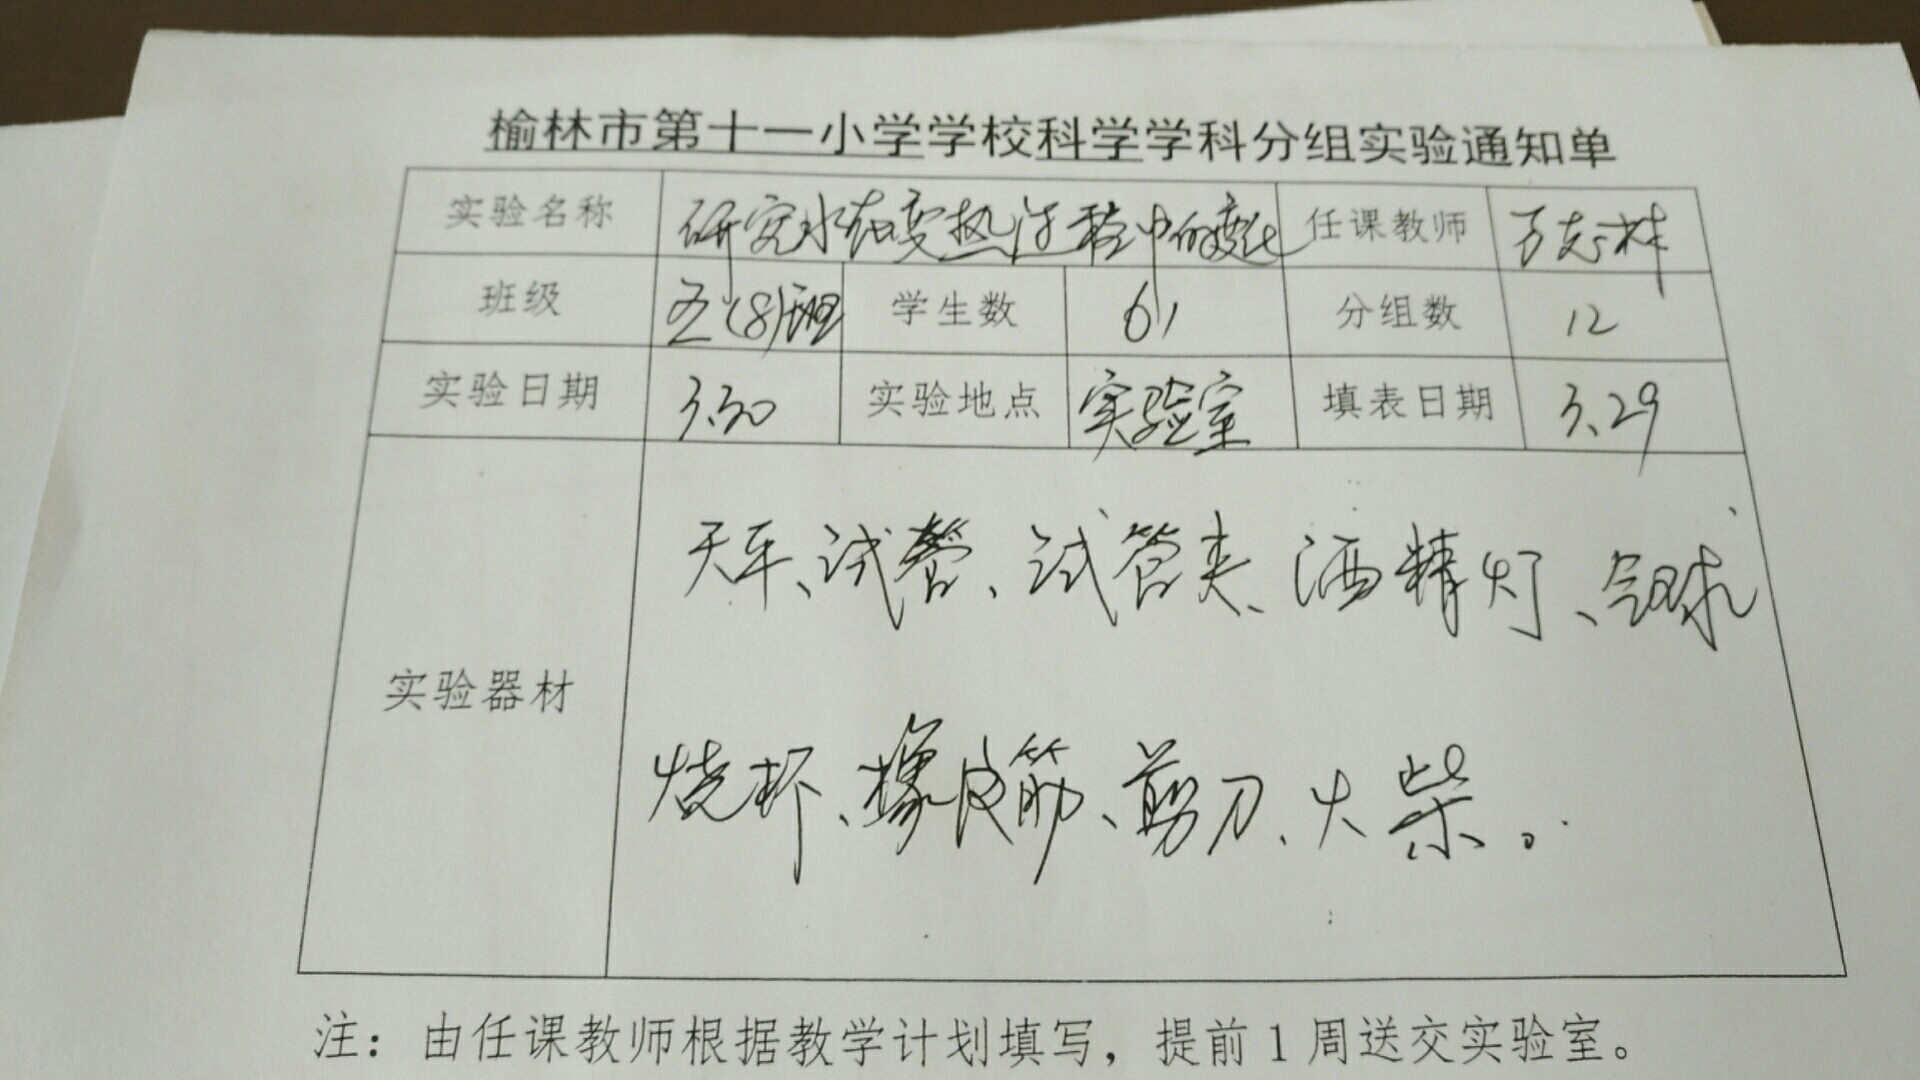 榆林市第十一小学学校科学学科分组实验通知单
实验名称 研究水在变热过程中的变化 任课教师 万志林
班级 五(8)班 学生数 61 分组数 12
实验日期 3.30 实验地点 实验室 填表日期 3.29
天平、试管、试管夹、酒精灯、气球
实验器材
烧杯、橡皮筋、剪刀、火柴。
注：由任课教师根据教学计划填写，提前1周送交实验室。